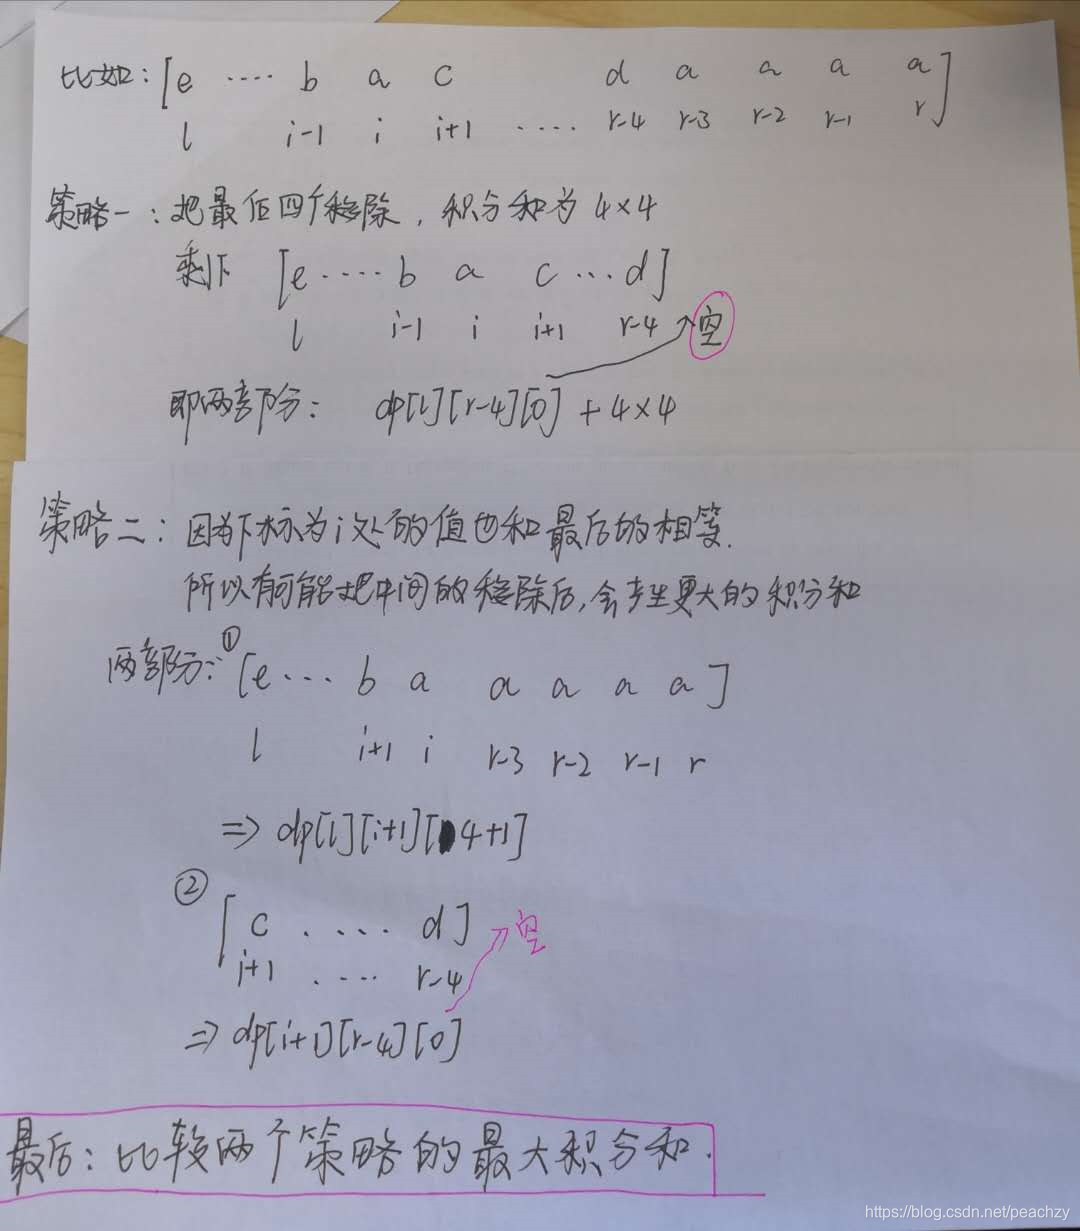 比如: [e ···· b a c d a a a a]
l i-1 i i+1 ···· r-4 r-3 r-2 r-1 r
策略一: 把最后四个移除, 积分和为 4×4
剩下 [e ···· b a c ··· d]
l i-1 i i+1 r-4 空
即两部分: dp[l][r-4][0] + 4×4
策略二: 因为下标为i处的值也和最后的相等.
所以有可能把中间的移除后, 会产生更大的积分和
两部分: ① [e ··· b a a a a a]
l i+1 i r-3 r-2 r-1 r
⇒ dp[l][i+1][4+1]
②
[c ····· d] 空
i+1 ···· r-4
⇒ dp[i+1][r-4][0]
最后: 比较两个策略的最大积分和.
https://blog.csdn.net/peachzy